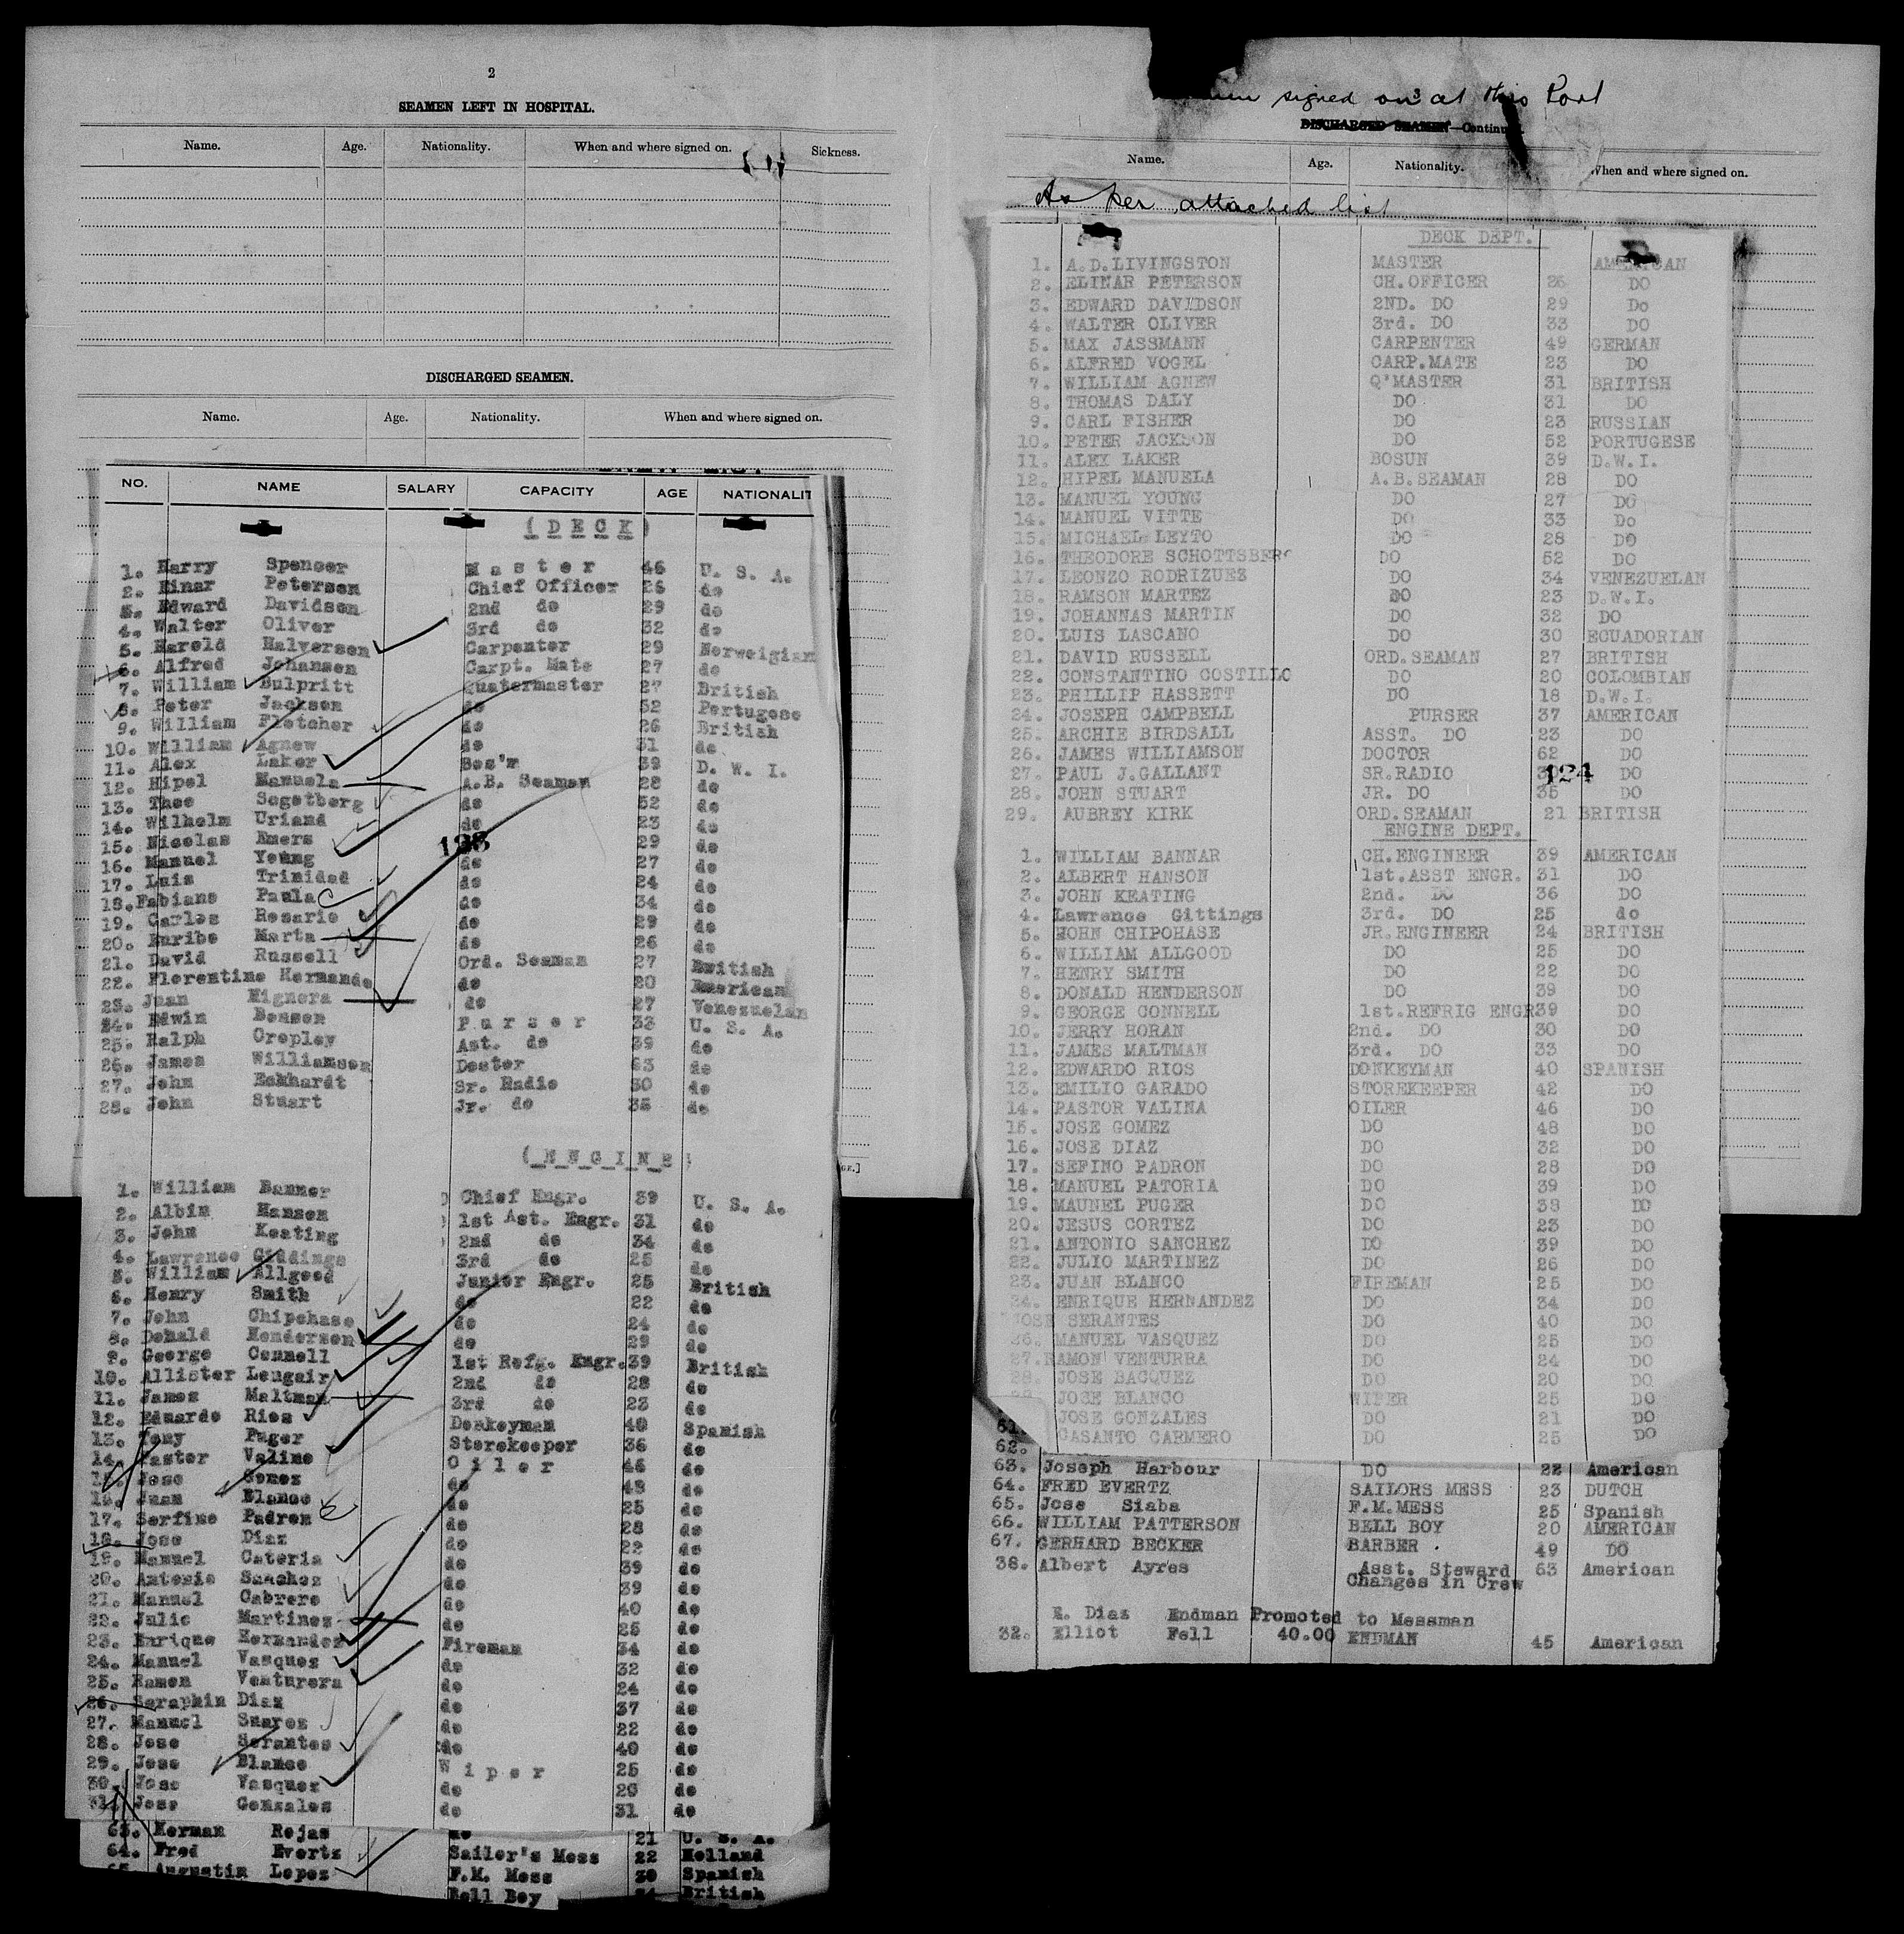 2
SEAMEN LEFT IN HOSPITAL.
Name. Age. Nationality. When and where signed on. Sickness.
DISCHARGED SEAMEN.
Name. Age. Nationality. When and where signed on.
NO. NAME SALARY CAPACITY AGE NATIONALIT
( D E C K )
1. Harry Spencer M a s t e r 46 U. S. A.
2. Einar Petersen Chief Officer 26 do
3. Edward Davidson 2nd do 29 do
4. Walter Oliver 3rd do 32 do
5. Harold Halversen Carpenter 29 Norweigian
6. Alfred Johansen Carpt. Mate 27 do
7. William Bulpritt Quatermaster 27 British
8. Peter Jackson do 52 Portugese
9. William Fletcher do 26 British
10. William Agnew do 31 do
11. Alex Laker Bos'n 39 D. W. I.
12. Hipel Manuela A.B. Seaman 28 do
13. Theo Sogstberg do 52 do
14. Wilhelm Uriand do 23 do
15. Nicolas Emers do 29 do
198
16. Manuel Young do 27 do
17. Luis Trinidad do 24 do
18. Fabiano Paula do 34 do
19. Carlos Rosario do 29 do
20. Enribo Marta do 26 do
21. David Russell Ord. Seaman 27 British
22. Florentino Hernando do 20 American
23. Juan Mignora do 27 Venezuelan
24. Edwin Bensen P u r s e r 33 U. S. A.
25. Ralph Cropley Ast. do 39 do
26. James Williamson Doctor 63 do
27. John Eckhardt Sr. Radio 30 do
28. John Stuart Jr. do 35 do
( E N G I N E )
1. William Banner Chief Engr. 39 U. S. A.
2. Albin Hansen 1st Ast. Engr. 31 do
3. John Keating 2nd do 34 do
4. Lawrence Giddings 3rd do 25 do
5. William Allgood Junior Engr. 25 British
6. Henry Smith do 22 do
7. John Chipchase do 24 do
8. Donald Henderson do 29 do
9. George Connell 1st Refg. Engr. 39 British
10. Allister Lengair 2nd do 28 do
11. James Maltman 3rd do 23 do
12. Eduardo Rios Donkeyman 40 Spanish
13. Tony Puger Storekeeper 36 do
14. Paster Valino O i l e r 46 do
15. Jose Gomez do 48 do
16. Juan Blanco do 25 do
17. Serfino Padron do 28 do
18. Jose Diaz do 22 do
19. Manuel Cateria do 39 do
20. Antonio Sanchez do 39 do
21. Manuel Cabrero do 40 do
22. Julio Martinez do 25 do
23. Enrique Hernandez Fireman 34 do
24. Manuel Vasquez do 32 do
25. Ramon Venturera do 24 do
26. Seraphin Diaz do 37 do
27. Manuel Suarez do 22 do
28. Jose Serantes do 40 do
29. Jose Blanco W i p e r 25 do
30. Jose Vasquez do 20 do
31. Jose Gonzales do 31 do
63. Herman Rojas do 21 U. S. A.
64. Fred Evertz Sailor's Mess 22 Holland
65. Augustin Lopez F.M. Mess 30 Spanish
Bell Boy British
signed on at this Port
3
DISCHARGED SEAMEN—Continued.
Name. Age. Nationality. When and where signed on.
As per attached list
DECK DEPT.
1. A.D.LIVINGSTON MASTER AMERICAN
2. ELINAR PETERSON CH.OFFICER 26 DO
3. EDWARD DAVIDSON 2ND. DO 29 Do
4. WALTER OLIVER 3rd. DO 33 DO
5. MAX JASSMANN CARPENTER 49 GERMAN
6. ALFRED VOGEL CARP.MATE 23 DO
7. WILLIAM AGNEW Q'MASTER 31 BRITISH
8. THOMAS DALY DO 31 DO
9. CARL FISHER DO 23 RUSSIAN
10. PETER JACKSON DO 52 PORTUGESE
11. ALEX LAKER BOSUN 39 D.W.I.
12. HIPEL MANUELA A.B.SEAMAN 28 DO
13. MANUEL YOUNG DO 27 DO
14. MANUEL VITTE DO 33 Do
15. MICHAEL LEYTO DO 28 DO
16. THEODORE SCHOTTSBERG DO 52 DO
17. LEONZO RODRIZUEZ DO 34 VENEZUELAN
18. RAMSON MARTEZ DO 23 D.W.I.
19. JOHANNAS MARTIN DO 32 DO
20. LUIS LASCANO DO 30 ECUADORIAN
21. DAVID RUSSELL ORD.SEAMAN 27 BRITISH
22. CONSTANTINO COSTILLO DO 20 COLOMBIAN
23. PHILLIP HASSETT DO 18 D.W.I.
24. JOSEPH CAMPBELL PURSER 37 AMERICAN
25. ARCHIE BIRDSALL ASST. DO 23 DO
26. JAMES WILLIAMSON DOCTOR 62 DO
27. PAUL J.GALLANT SR.RADIO 124 DO
28. JOHN STUART JR. DO 35 DO
29. AUBREY KIRK ORD.SEAMAN 21 BRITISH
ENGINE DEPT.
1. WILLIAM BANNAR CH.ENGINEER 39 AMERICAN
2. ALBERT HANSON 1st.ASST ENGR. 31 DO
3. JOHN KEATING 2nd. DO 36 DO
4. Lawrence Gittings 3rd. DO 25 do
5. HOHN CHIPCHASE JR.ENGINEER 24 BRITISH
6. WILLIAM ALLGOOD DO 25 DO
7. HENRY SMITH DO 22 DO
8. DONALD HENDERSON DO 39 DO
9. GEORGE CONNELL 1st.REFRIG ENGR 39 DO
10. JERRY HORAN 2nd. DO 30 DO
11. JAMES MALTMAN 3rd. DO 33 DO
12. EDWARDO RIOS DONKEYMAN 40 SPANISH
13. EMILIO GARADO STOREKEEPER 42 DO
14. PASTOR VALINA OILER 46 DO
15. JOSE GOMEZ DO 48 DO
16. JOSE DIAZ DO 32 DO
17. SEFINO PADRON DO 28 DO
18. MANUEL PATORIA DO 39 DO
19. MAUNEL PUGER DO 38 DO
20. JESUS CORTEZ DO 23 DO
21. ANTONIO SANCHEZ DO 39 DO
22. JULIO MARTINEZ DO 26 DO
23. JUAN BLANCO FIREMAN 25 DO
24. ENRIQUE HERNANDEZ DO 34 DO
JOSE SERANTES DO 40 DO
26. MANUEL VASQUEZ DO 25 DO
27. RAMON VENTURRA DO 24 DO
28. JOSE BACQUEZ DO 20 DO
JOSE BLANCO WIPER 25 DO
JOSE GONZALES DO 21 DO
61. CASANTO CARMERO DO 25 DO
62.
63. Joseph Harbour DO 22 American
64. FRED EVERTZ SAILORS MESS 23 DUTCH
65. Jose Siaba F.M.MESS 25 Spanish
66. WILLIAM PATTERSON BELL BOY 20 AMERICAN
67. GERHARD BECKER BARBER 49 DO
38. Albert Ayres Asst. Steward 63 American
Changes in Crew
E. Diaz Endman Promoted to Messman
32. Elliot Fell 40.00 ENDMAN 45 American